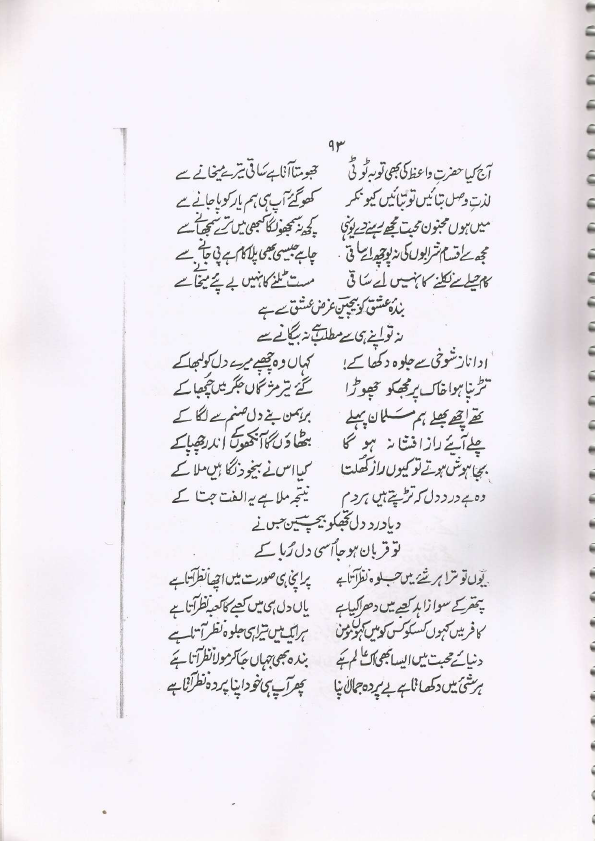 ۹۳
آج کیا حضرتِ واعظ کی بھی توبہ ٹوٹی جھومتا آتا ہے ساقی تیرے میخانے سے
لذتِ وصل بتائیں تو بتائیں کیونکر کھو گئے آپ ہی ہم یار کو پا جانے سے
میں ہوں مجنونِ محبت مجھے رہنے دے یونہی کچھ نہ سمجھوں گا کبھی میں ترے سمجھانے سے
مجھ سے اقسام شرابوں کی نہ پوچھ اے ساقی چاہے جیسی بھی پلا کام ہے پی جانے سے
کام حیلے سے نکلنے کا نہیں اے ساقی مست ٹلنے کا نہیں بے پئے میخانے سے
بندۂ عشق کو بیچین غرض عشق سے ہے
نہ تو اپنے ہی سے مطلب ہے نہ بیگانے سے
ادا ناز شوخی سے جلوہ دکھا کے! کہاں وہ چھپے میرے دل کو لبھا کے
تڑپتا ہوا خاک پر مجھکو چھوڑا گئے تیر مژگاں جگر میں چبھا کے
تھے اچھے بھلے ہم مسلمان پہلے برہمن بنے دل صنم سے لگا کے
چلے آیئے راز افشا نہ ہو گا بٹھاؤں گا آنکھوں کے اندر چھپا کے
بجا ہوش ہوتے تو کیوں راز کھلتا کیا اس نے بیخود نگاہیں ملا کے
وہ ہے درد دل کہ تڑپتے ہیں ہر دم نتیجہ ملا ہے یہ الفت جتا کے
دیا درد دل تجھکو بیچین جس نے
تو قربان ہو جا اُسی دل رُبا کے
یوں تو ترا ہر شئے میں جلوہ نظر آتا ہے پر اپنی ہی صورت میں اچھا نظر آتا ہے
پتھر کے سوا زاہد کعبے میں دھرا کیا ہے یاں دل ہی میں کعبے کا کعبہ نظر آتا ہے
کافر میں کہوں کسکو کس کو میں کہوں مومن ہر ایک میں تیرا ہی جلوہ نظر آتا ہے
دنیائے محبت میں ایسا بھی اک عالم ہے بندہ بھی جہاں جا کر مولا نظر آتا ہے
ہر شئ میں دکھاتا ہے بے پردہ جمال اپنا پھر آپ ہی خود اپنا پردہ نظر آتا ہے